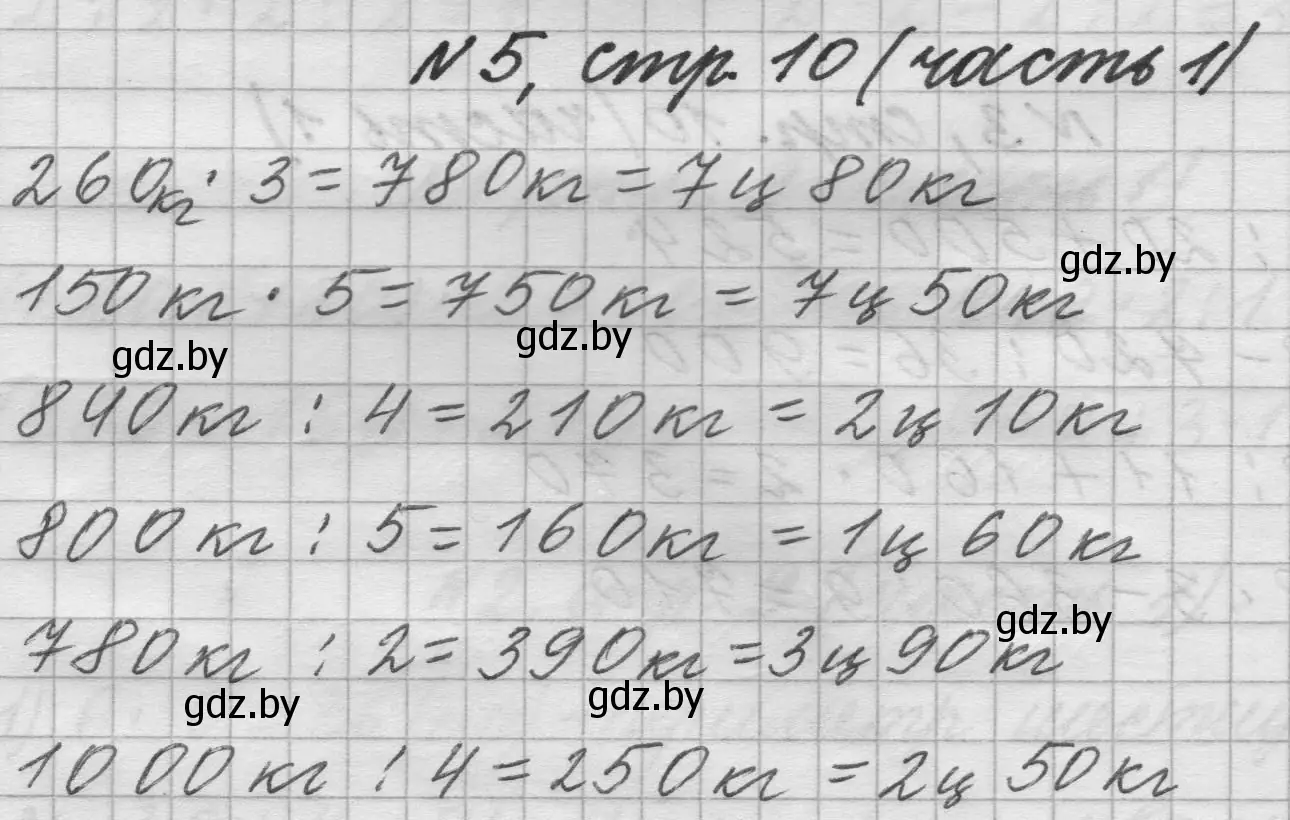 N 5, стр. 10 (часть 1)
260кг · 3 = 780кг = 7ц 80кг
gdz.by
150кг · 5 = 750кг = 7ц 50кг
gdz.by
gdz.by
840кг : 4 = 210кг = 2ц 10кг
800кг : 5 = 160кг = 1ц 60кг
gdz.by
780кг : 2 = 390кг = 3ц 90кг
gdz.by
gdz.by
1000кг : 4 = 250кг = 2ц 50кг